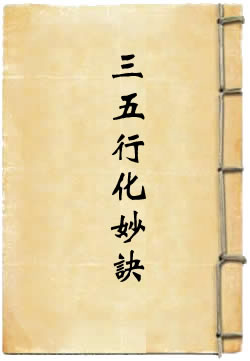 三五行化妙訣